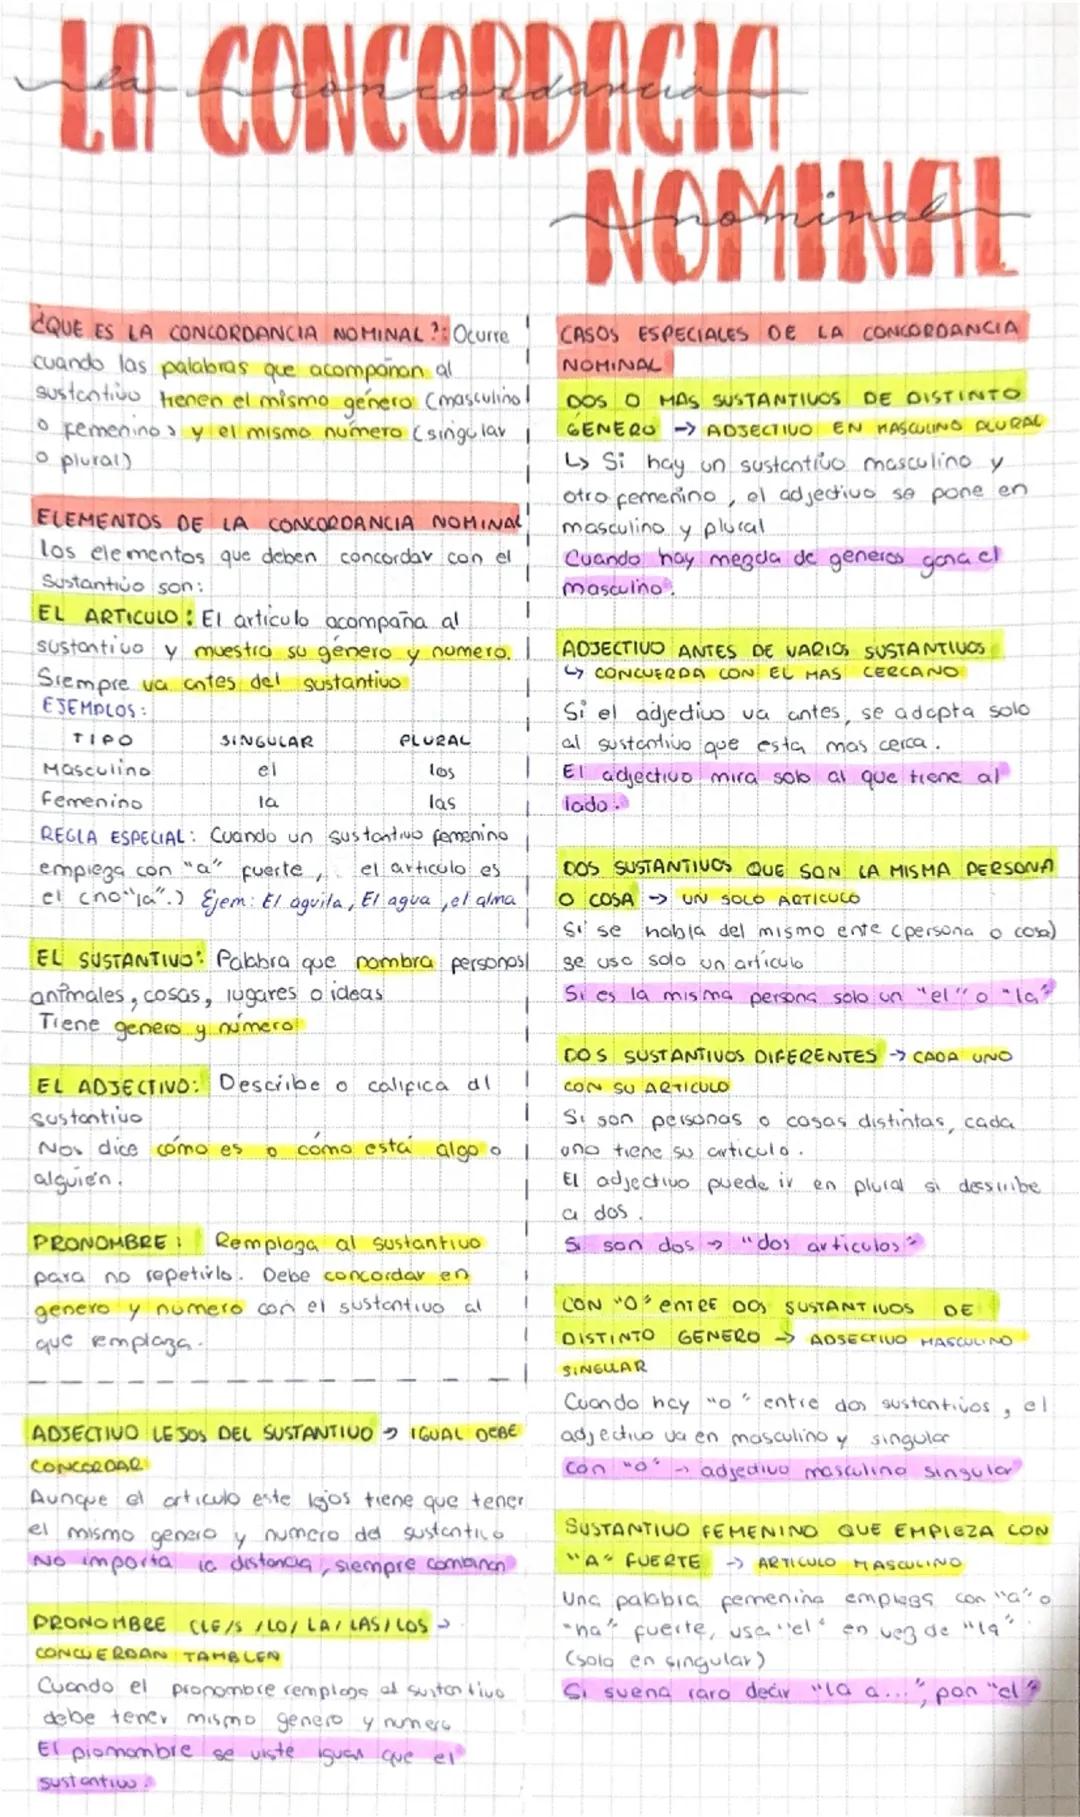 LA CONCORDACIA
la concordancia
NOMINAL
nominal
¿QUE ES LA CONCORDANCIA NOMINAL?: Ocurre
cuando las palabras que acompañan al
sustantivo tienen el mismo género (masculino
o femenino) y el mismo número (singular
o plural)
ELEMENTOS DE LA CONCORDANCIA NOMINAL
los elementos que deben concordar con el
sustantivo son:
EL ARTICULO: El artículo acompaña al
sustantivo y muestra su género y numero.
Siempre va antes del sustantivo
EJEMPLOS:
TIPO SINGULAR PLURAL
Masculino el los
Femenino la las
REGLA ESPECIAL: Cuando un sustantivo femenino
empieza con "a" fuerte, el artículo es
el (no "la".) Ejem: El águila, El agua, el alma
EL SUSTANTIVO: Palabra que nombra personas
animales, cosas, lugares o ideas
Tiene genero y número
EL ADJECTIVO: Describe o califica al
sustantivo
Nos dice cómo es o cómo está algo o
alguién.
PRONOMBRE: Remplaza al sustantivo
para no repetirlo. Debe concordar en
genero y numero con el sustantivo al
que remplaza.
ADJECTIVO LEJOS DEL SUSTANTIVO → IGUAL DEBE
CONCORDAR
Aunque el articulo este lejos tiene que tener
el mismo genero y numero del sustantivo
No importa la distancia, siempre combinan
PRONOMBRE (LE/S /LO/ LA/ LAS/ LOS →
CONCUERDAN TAMBLEN
Cuando el pronombre remplaza al sustantivo
debe tener mismo genero y numero
El pronombre se viste igual que el
sustantivo.
CASOS ESPECIALES DE LA CONCORDANCIA
NOMINAL
DOS O MAS SUSTANTIVOS DE DISTINTO
GENERO → ADJECTIVO EN MASCULINO PLURAL
↳ Si hay un sustantivo masculino y
otro femenino, el adjectivo se pone en
masculino y plural
Cuando hay mezcla de generos gana el
masculino.
ADJECTIVO ANTES DE VARIOS SUSTANTIVOS
↳ CONCUERDA CON EL MAS CERCANO
Si el adjectivo va antes, se adapta solo
al sustantivo que esta mas cerca.
El adjectivo mira solo al que tiene al
lado.
DOS SUSTANTIVOS QUE SON LA MISMA PERSONA
O COSA → UN SOLO ARTICULO
Si se habla del mismo ente (persona o cosa)
se usa solo un artículo
Si es la misma persona solo un "el" o "la"
DOS SUSTANTIVOS DIFERENTES → CADA UNO
CON SU ARTICULO
Si son personas o cosas distintas, cada
uno tiene su articulo.
El adjectivo puede ir en plural si describe
a dos.
Si son dos → "dos articulos"
CON "O" ENTRE DOS SUSTANTIVOS DE
DISTINTO GENERO → ADJECTIVO MASCULINO
SINGULAR
Cuando hay "o" entre dos sustantivos, el
adjectivo va en masculino y singular
Con "o" → adjectivo masculino singular
SUSTANTIVO FEMENINO QUE EMPIEZA CON
"A" FUERTE → ARTICULO MASCULINO
Una palabra femenina empieza con "a" o
"ha" fuerte, usa "el" en vez de "la"
(solo en singular)
Si suena raro decir "la a...", pon "el"